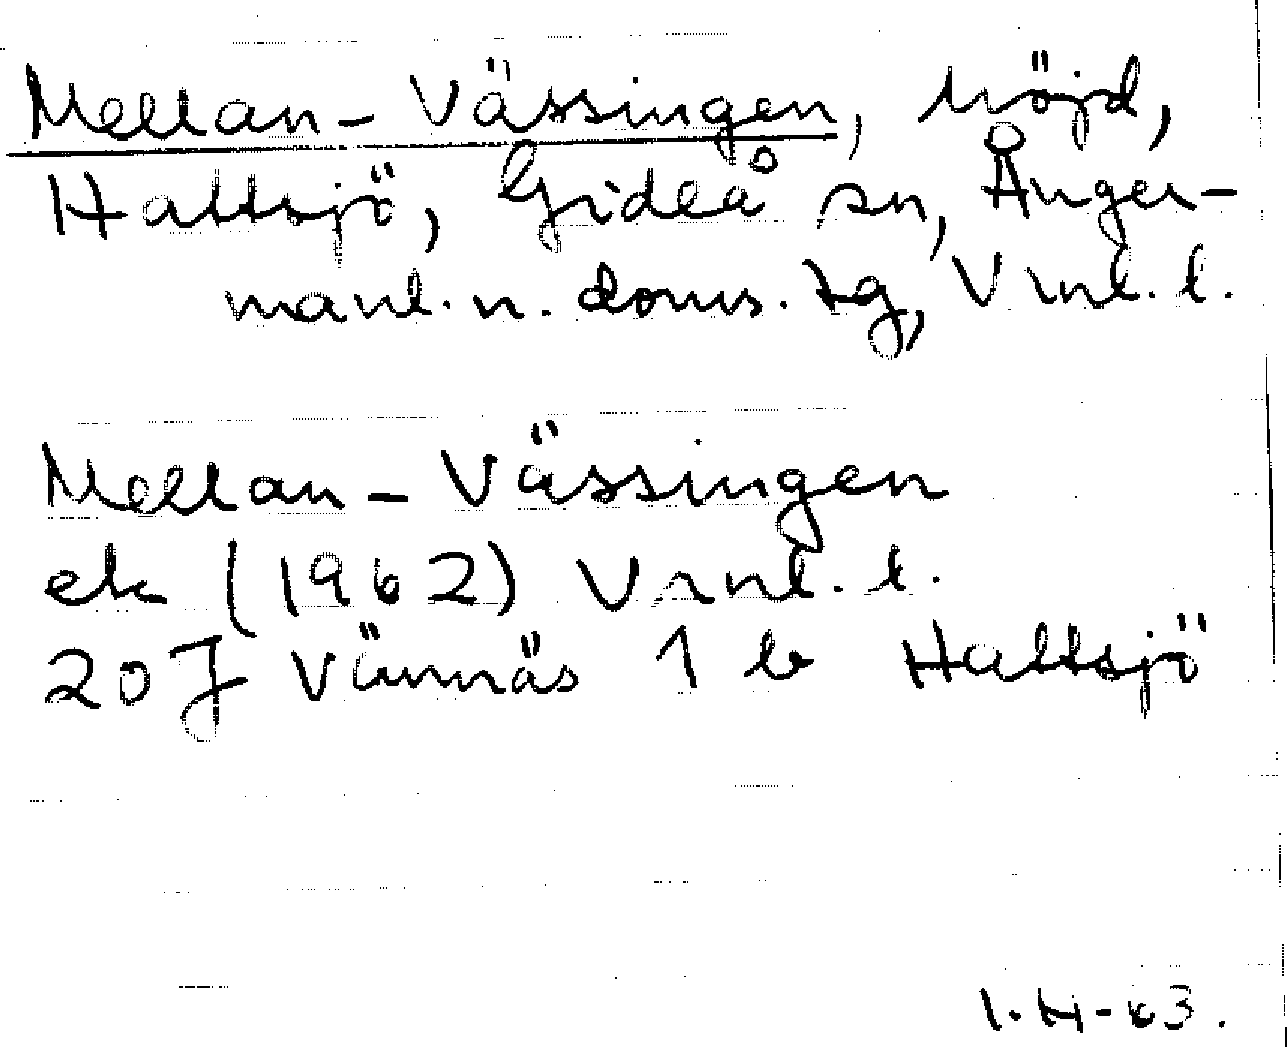 Mellan-Vässingen, höjd,
Hattsjö, Gideå sn, Ånger-
manl. n. doms. tg, Vnl. l.
Mellan-Vässingen
ek (1962) Vnl. l.
20J Vännäs 1 b Hattsjö
I.H-63.